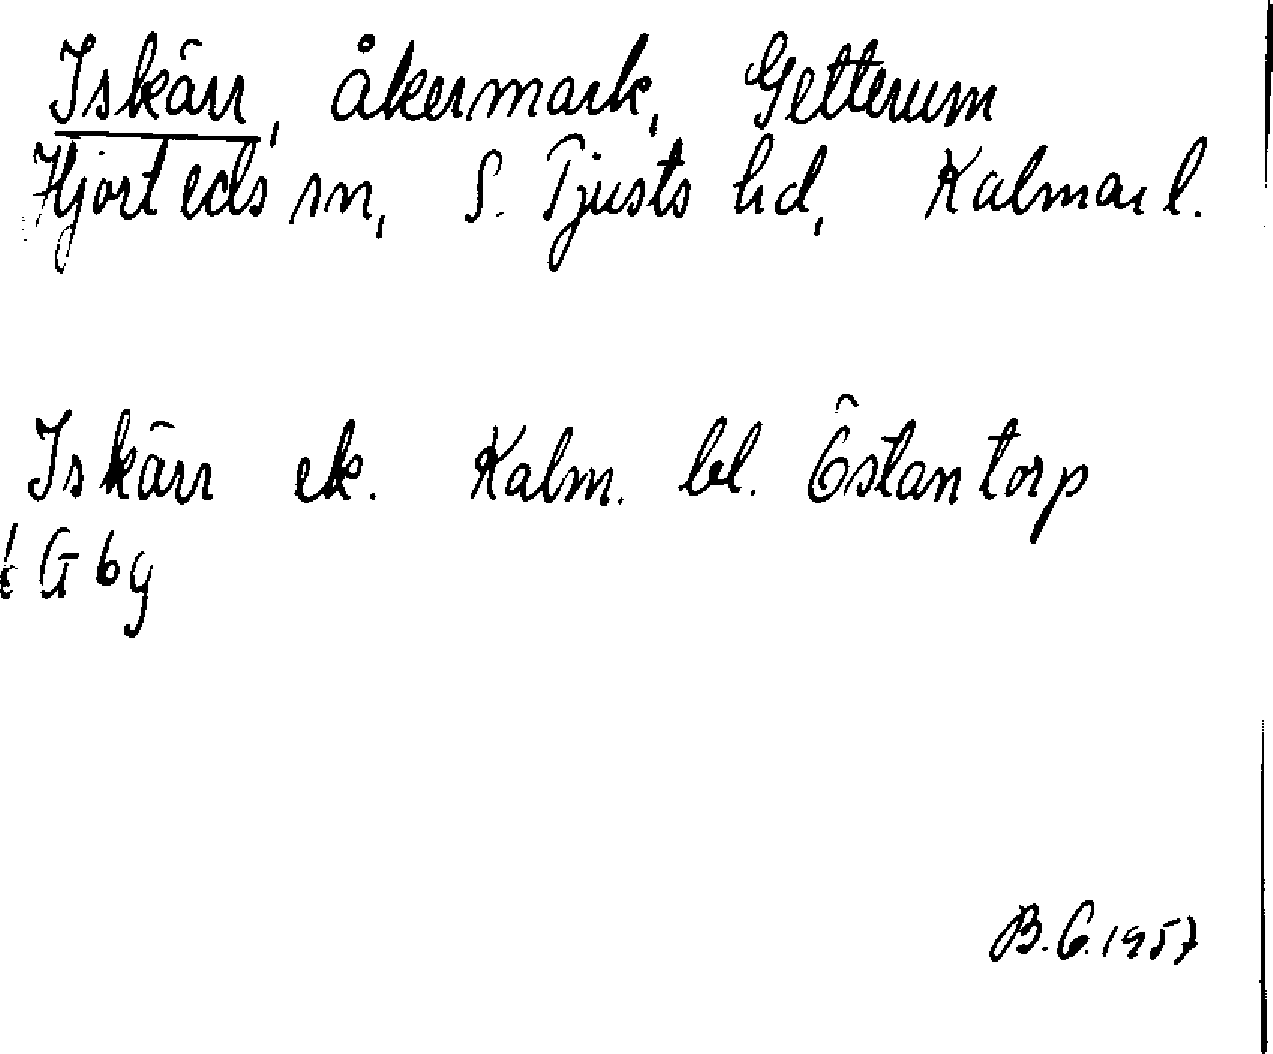 Iskärr, åkermark, Getterum
Hjorteds sn, S. Tjusts hd, Kalmar l.
Iskärr ek. Kalm. bl. Östantorp
G 6y
B.G. 1957